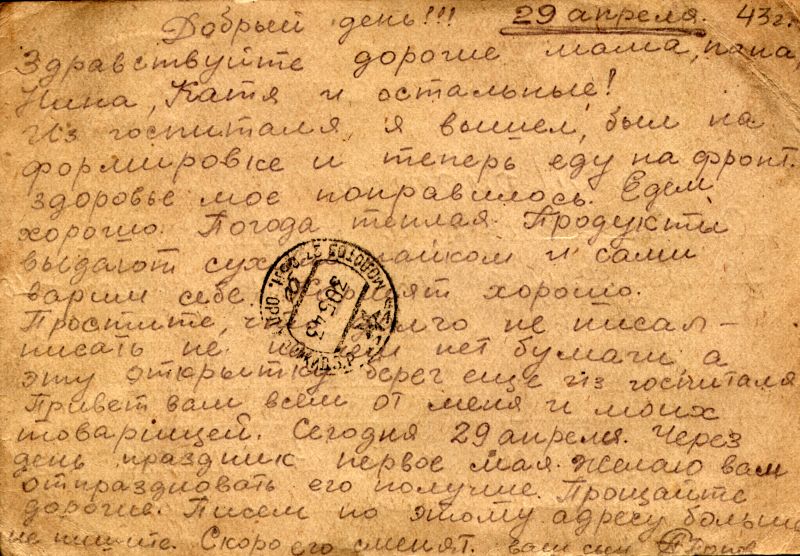 Добрый день!!! 29 апреля. 43 г.
Здравствуйте дорогие мама, папа,
Нина, Катя и остальные!
Из госпиталя я вышел, был на
формировке и теперь еду на фронт.
Здоровье мое поправилось. Едем
хорошо. Погода теплая. Продукты
выдают сухим пайком и сами
варим себе. хорошо.
Простите, что долго не писал –
писать не нет бумаги а
эту открытку берег еще из госпиталя
Привет вам всем от меня и моих
товарищей. Сегодня 29 апреля. Через
день праздник первое мая. Желаю вам
отпраздновать его получше. Прощайте
дорогие. Писем по этому адресу больше
не пишите. Скоро его сменят. ваш сын
МОЛОТОВ
30 5 43